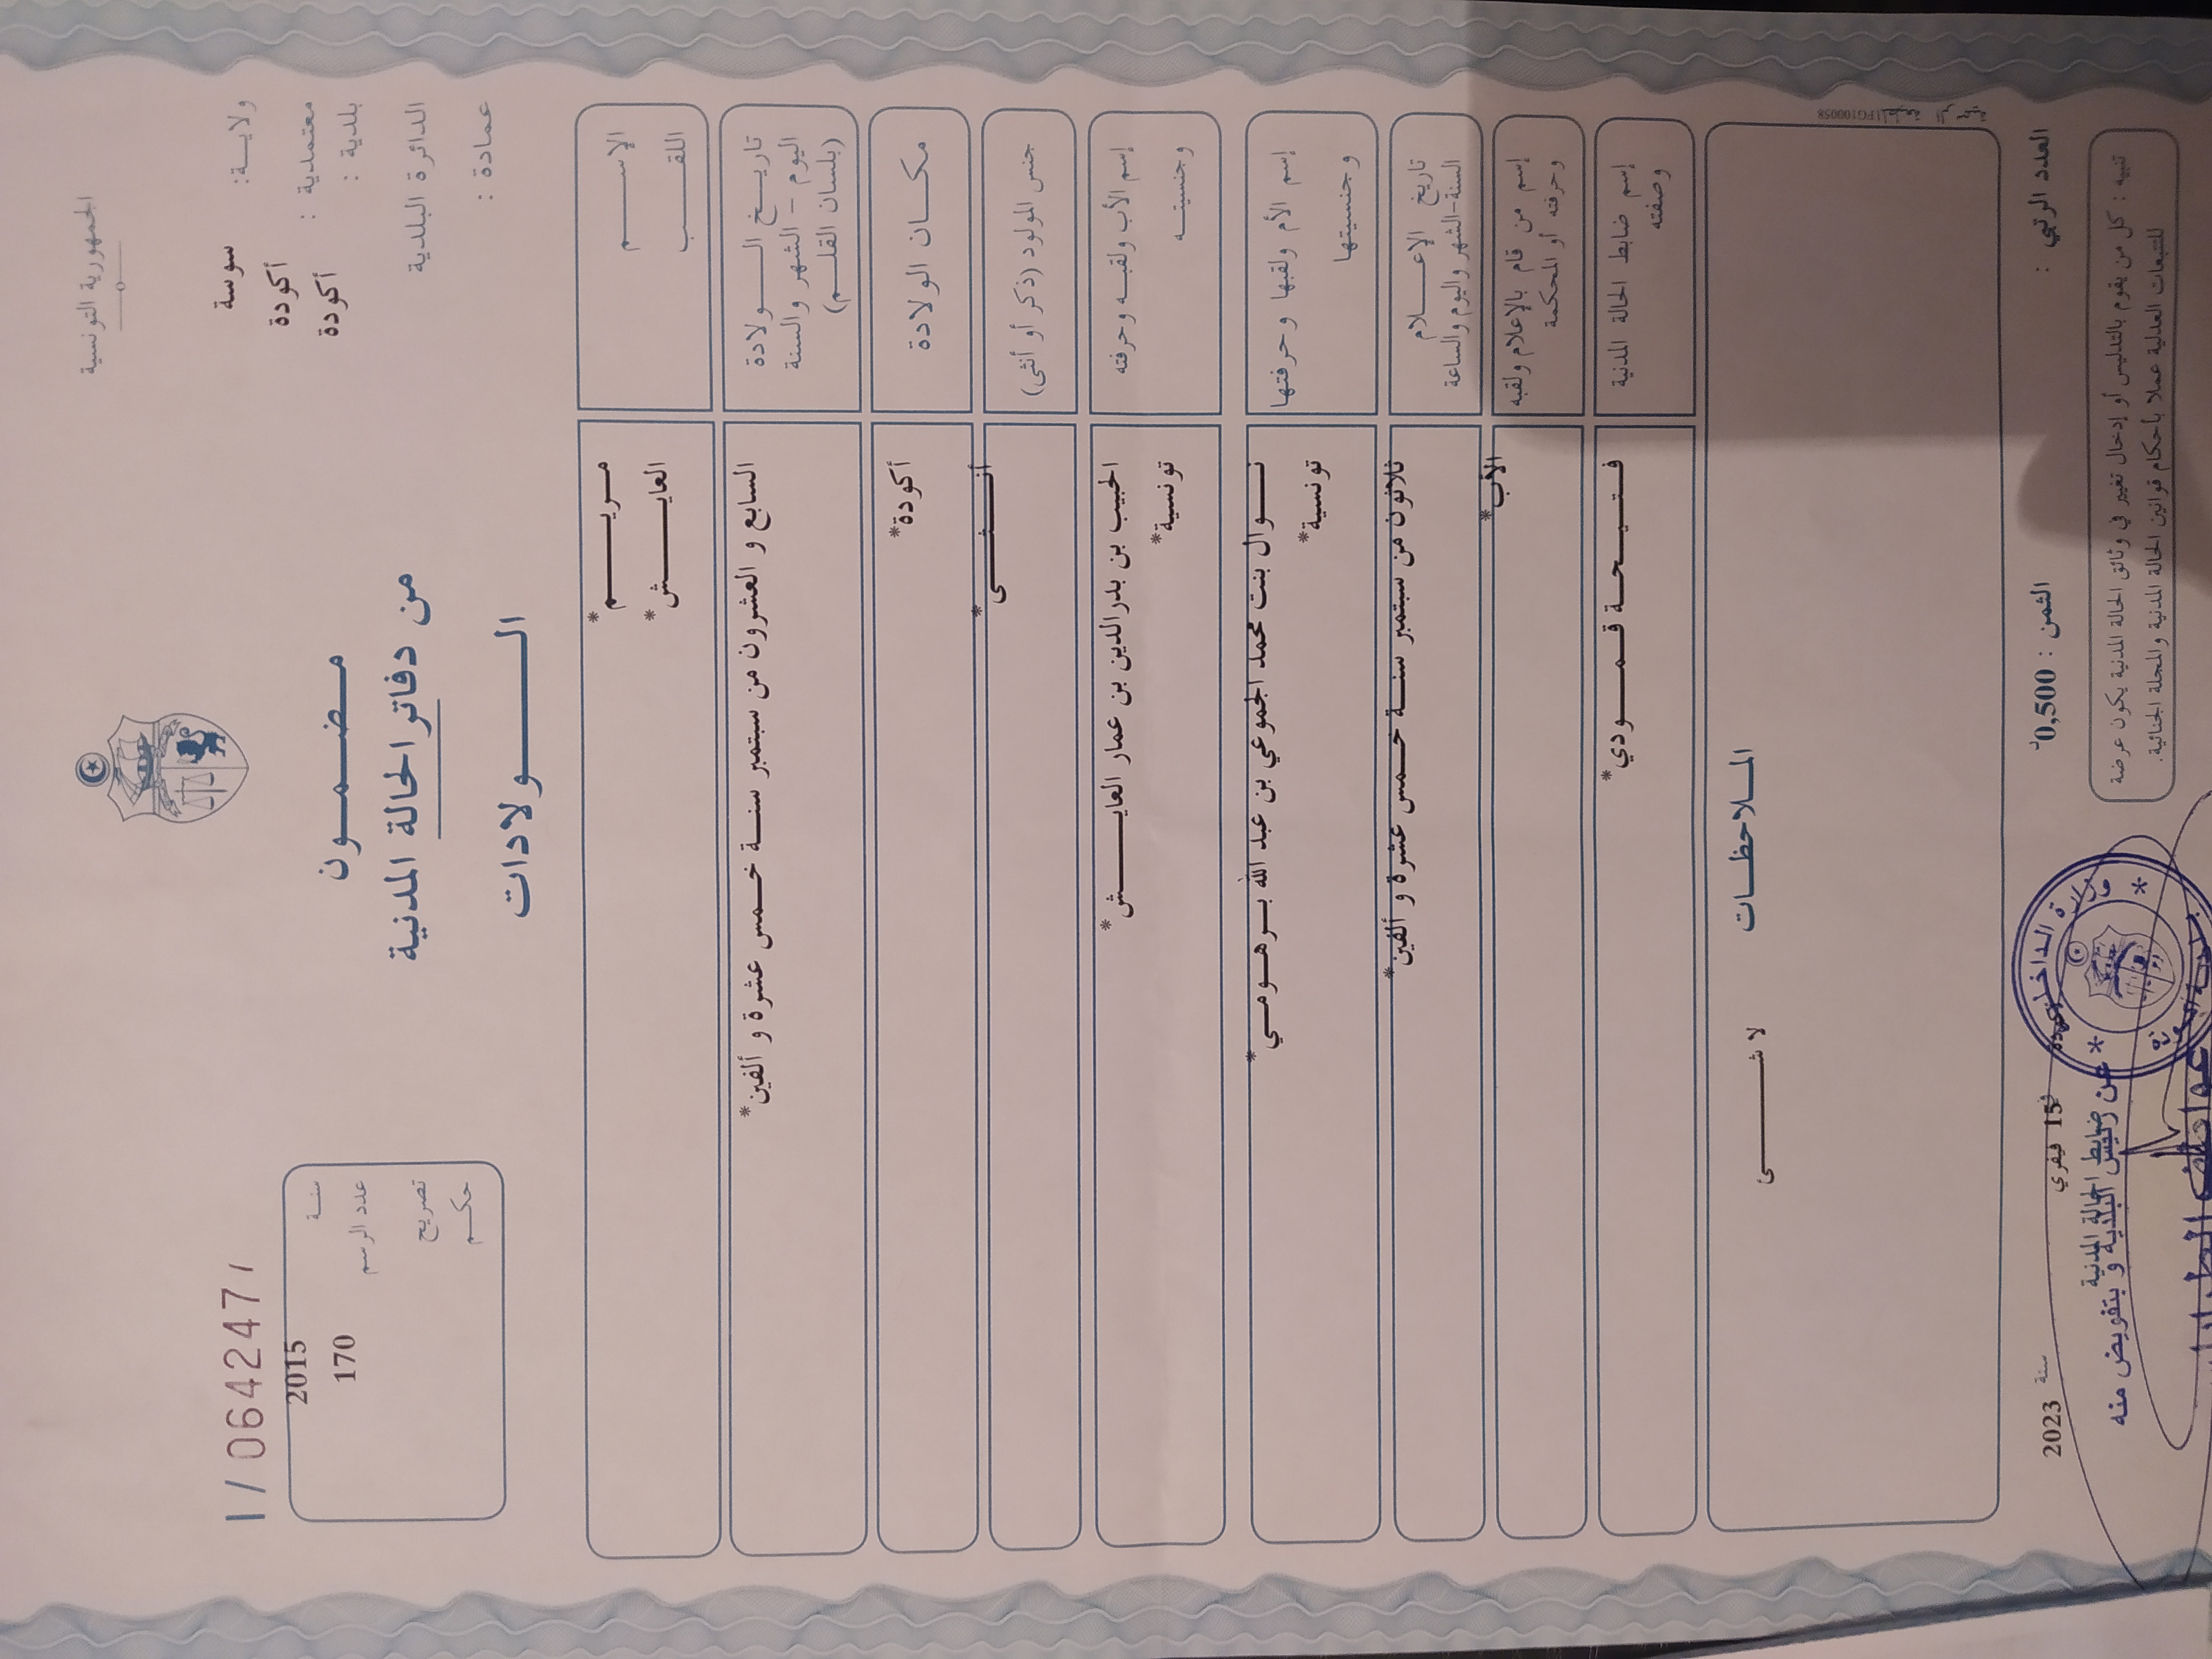 الجمهورية التونسية
ولاية: سوسة
معتمدية : أكودة
بلدية : أكودة
الدائرة البلدية
عمادة :
مضمون
من دفاتر الحالة المدنية
الولادات
I / 0642471
سنة 2015
عدد الرسم 170
تصريح
حكم
الإسم مريم*
اللقب العايش*
تاريخ الولادة السابع و العشرون من سبتمبر سنة خمس عشرة و ألفين*
اليوم - الشهر والسنة
(بلسان القلم)
مكان الولادة أكودة*
جنس المولود (ذكر أو أنثى) أنثى*
إسم الأب ولقبه وحرفته الحبيب بن بدر الدين بن عمار العايش*
وجنسيته تونسية*
إسم الأم ولقبها وحرفتها نوال بنت محمد الجموعي بن عبد الله برهومي*
وجنسيتها تونسية*
تاريخ الإعلام ثلاثون من سبتمبر سنة خمس عشرة و ألفين*
السنة-الشهر واليوم والساعة
إسم من قام بالإعلام ولقبه الأب*
وحرفته أو المحكمة
إسم ضابط الحالة المدنية فتيحة قمودي*
وصفته
الملاحظات
لا شئ
FG100058
العدد الرتبي :
الثمن : 0,500د
أكودة في 15 فيفري سنة 2023
ضابط الحالة المدنية
عن رئيس البلدية و بتفويض منه
وزارة الداخلية
تنبيه : كل من يقوم بالتدليس أو إدخال تغيير في وثائق الحالة المدنية يكون عرضة
للتتبعات العدلية عملا بأحكام قوانين الحالة المدنية والمجلة الجنائية.